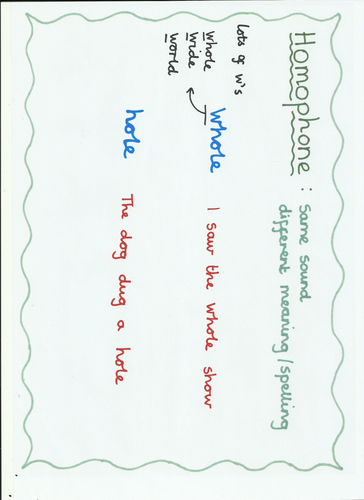 Homophone : same sound
different meaning/spelling
lots of w's
whole
wide
world
whole I saw the whole show
hole The dog dug a hole